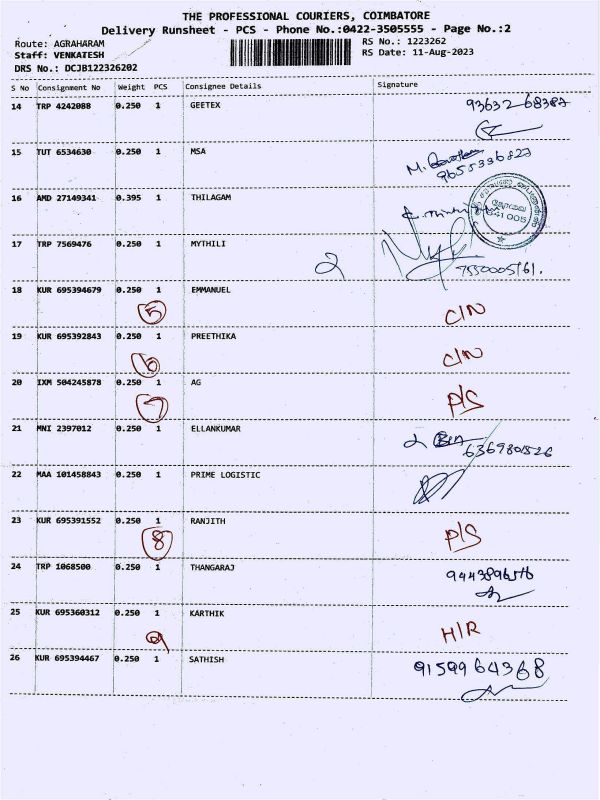 THE PROFESSIONAL COURIERS, COIMBATORE
Delivery Runsheet - PCS - Phone No.:0422-3505555 - Page No.:2
Route: AGRAHARAM
Staff: VENKATESH
DRS No.: DCJB122326202
RS No.: 1223262
RS Date: 11-Aug-2023
S No Consignment No Weight PCS Consignee Details Signature
14 TRP 4242088 0.250 1 GEETEX 93632 68387
15 TUT 6534630 0.250 1 MSA M.
9655336823
16 AMD 27149341 0.395 1 THILAGAM
641 005
17 TRP 7569476 0.250 1 MYTHILI 2
7550005161.
18 KUR 695394679 0.250 1 EMMANUEL C/N
5
19 KUR 695392843 0.250 1 PREETHIKA C/N
6
20 IXM 504245878 0.250 1 AG P/S
7
21 MNI 2397012 0.250 1 ELLANKUMAR
6369801526
22 MAA 101458843 0.250 1 PRIME LOGISTIC
23 KUR 695391552 0.250 1 RANJITH P/S
8
24 TRP 1068500 0.250 1 THANGARAJ
25 KUR 695360312 0.250 1 KARTHIK H/R
9
26 KUR 695394467 0.250 1 SATHISH 9159964368